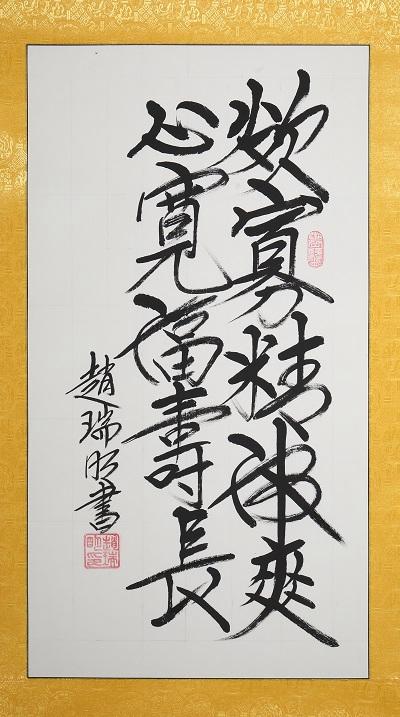 欲寡精神爽
心寬福壽長
趙瑞書